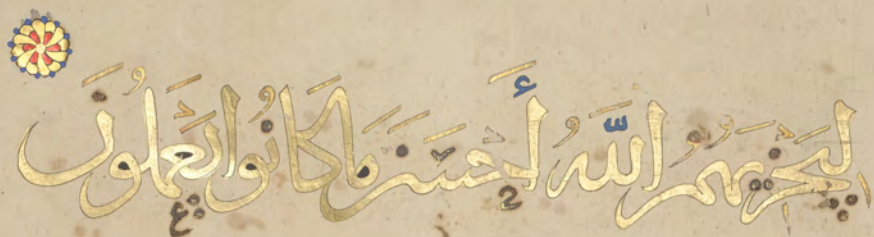 لِيَجْزِيَهُمُ اللَّهُ أَحْسَنَ مَا كَانُوا يَعْمَلُونَ